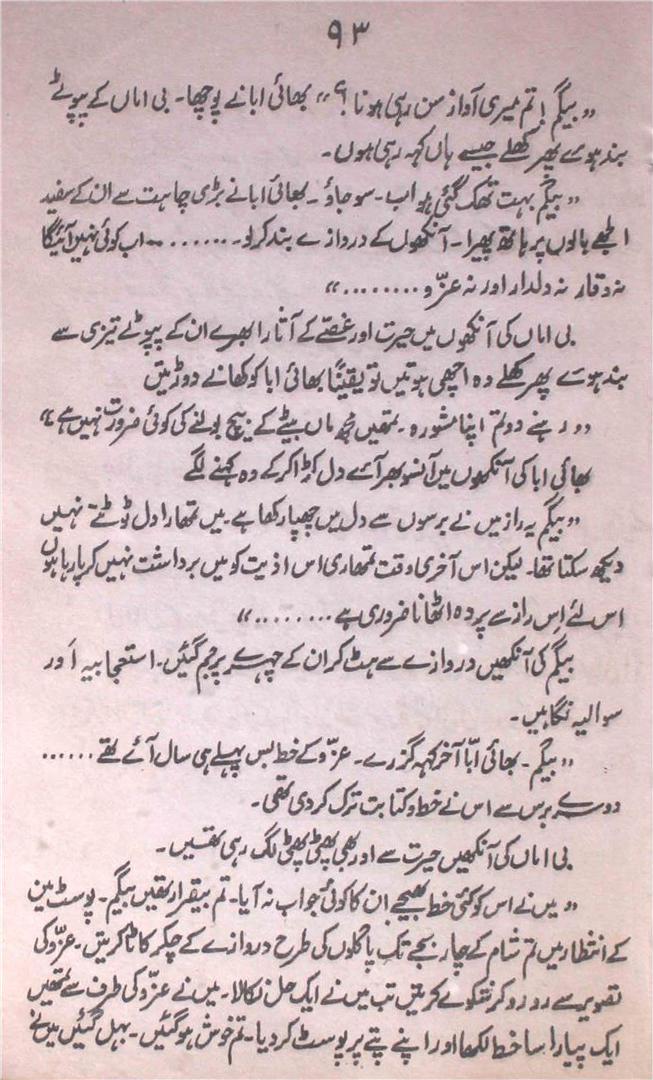 ۹۳
"بیگم! تم میری آواز سن رہی ہو نا؟" بھائی ابا نے پوچھا۔ بی اماں کے پپوٹے
بند ہوئے پھر کھلے جیسے ہاں کہہ رہی ہوں۔
"بیگم بہت تھک گئی ہو اب۔ سو جاؤ۔ بھائی ابا نے بڑی چاہت سے ان کے سفید
الجھے بالوں پر ہاتھ پھیرا۔ آنکھوں کے دروازے بند کر لو۔ ........ اب کوئی نہیں آئیگا
نہ وقار نہ دلدار اور نہ عزّو ........"
بی اماں کی آنکھوں میں حیرت اور غصّے کے آثار ابھرے ان کے پپوٹے تیزی سے
بند ہوئے پھر کھلے وہ اچھی ہوتیں تو یقینًا بھائی ابا کو کھانے دوڑتیں
"رہنے دو تم اپنا مشورہ۔ تمھیں مجھ ماں بیٹے کے بیچ بولنے کی کوئی ضرورت نہیں ہے"
بھائی ابا کی آنکھوں میں آنسو بھر آئے دل کڑا کر کے وہ کہنے لگے
"بیگم یہ راز میں نے برسوں سے دل میں چھپا رکھا ہے۔ میں تمھارا دل ٹوٹتے نہیں
دیکھ سکتا تھا۔ لیکن اس آخری وقت تمھاری اس اذیت کو میں برداشت نہیں کر پا رہا ہوں
اس لئے اِس راز سے پردہ اٹھانا ضروری ہے ........"
بیگم کی آنکھیں دروازے سے ہٹ کر ان کے چہرے پر جم گئیں۔ استعجابیہ اور
سوالیہ نگاہیں۔
"بیگم۔ بھائی ابّا آخر کہہ گزرے۔ عزّو کے خط بس پہلے ہی سال آئے تھے ......
دوسرے برس سے اس نے خط و کتابت ترک کر دی تھی۔
بی اماں کی آنکھیں حیرت سے اور بھی پھٹی پھٹی لگ رہی تھیں۔
"میں نے اس کو کئی خط بھیجے ان کا کوئی جواب نہ آیا۔ تم بیقرار تھیں بیگم۔ پوسٹ مین
کے انتظار میں تم شام کے چار بجے تک پاگلوں کی طرح دروازے کے چکر کاٹا کرتیں۔ عزّو کی
تصویر سے رو رو کر شکوے کرتیں تب میں نے ایک حل نکالا۔ میں نے عزّو کی طرف سے تمھیں
ایک پیارا سا خط لکھا اور اپنے پتے پر پوسٹ کر دیا۔ تم خوش ہو گئیں۔ بہل گئیں میں نے